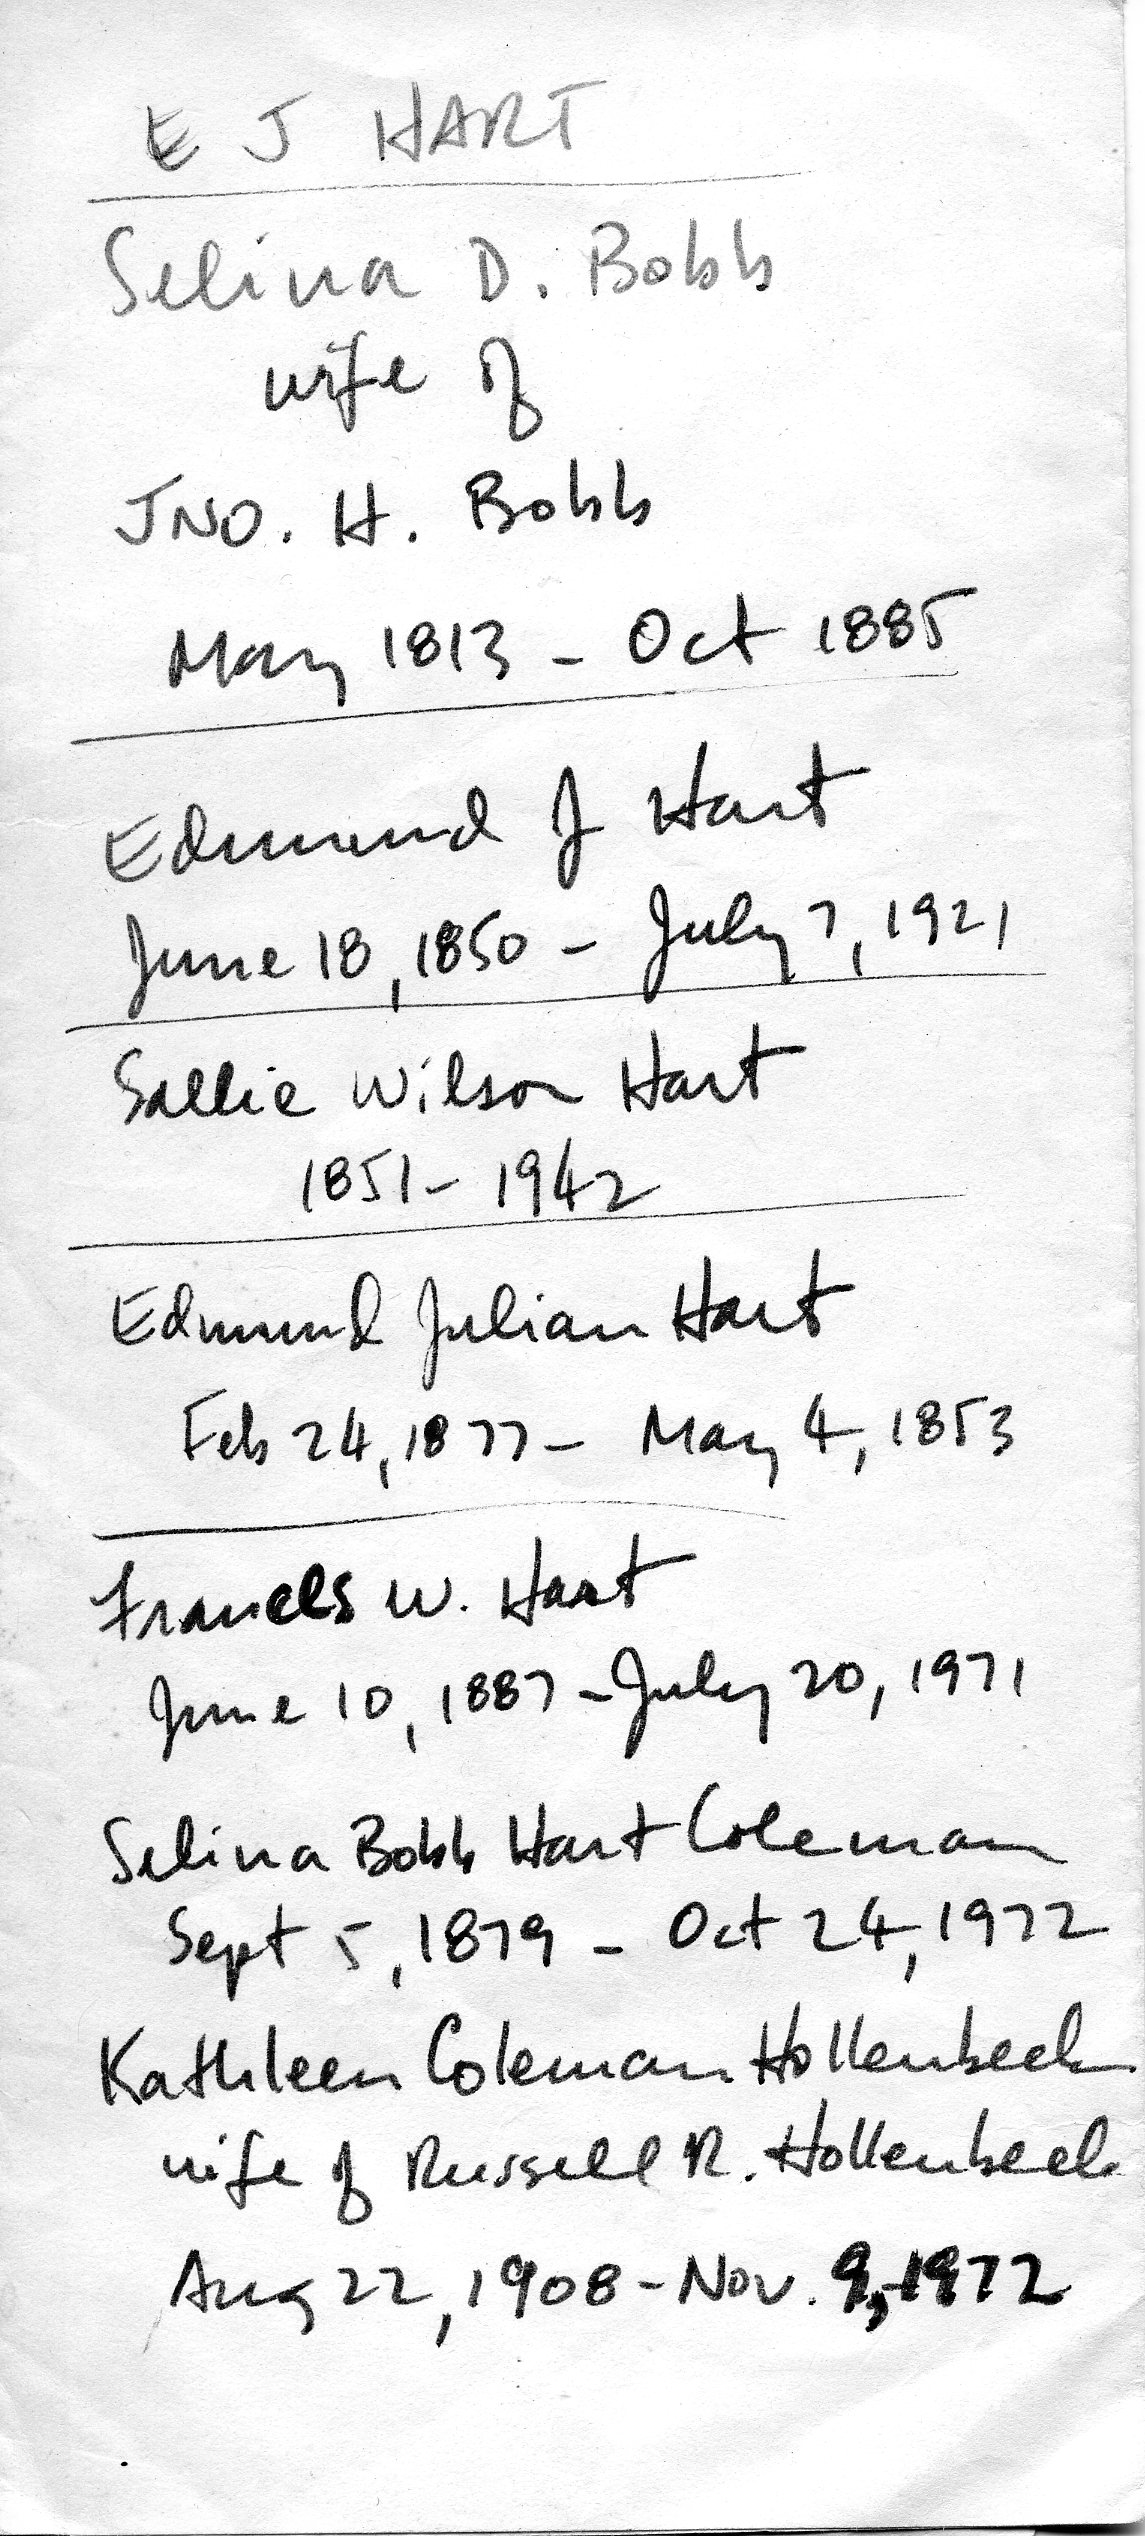 E J HART
Selina D. Bobb
wife of
JNO. H. Bobb
May 1813 - Oct 1885
Edmund J Hart
June 18, 1850 - July 7, 1921
Sallie Wilson Hart
1851 - 1942
Edmund Julian Hart
Feb 24, 1877 - May 4, 1853
Frances W. Hart
June 10, 1887 - July 20, 1971
Selina Bobb Hart Coleman
Sept 5, 1879 - Oct 24, 1972
Kathleen Coleman Hollenbeck
wife of Russell R. Hollenbeck
Aug 22, 1908 - Nov. 9, 1972